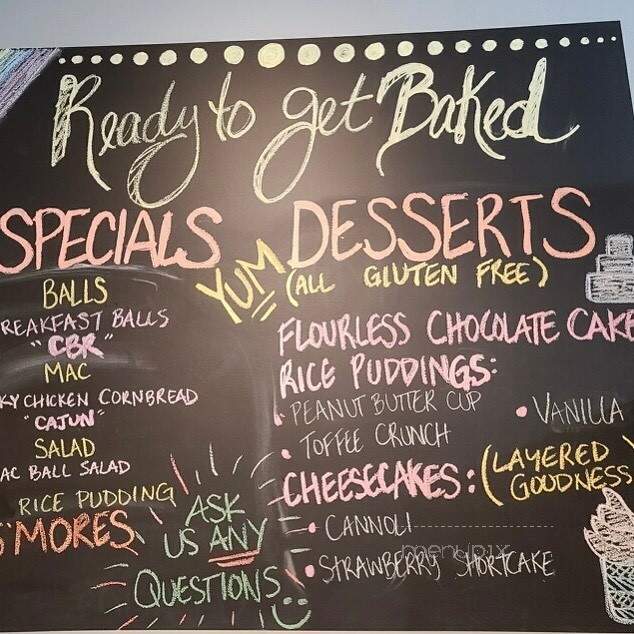 Ready to get Baked
SPECIALS
BALLS
REAKFAST BALLS
"CBR"
MAC
KY CHICKEN CORNBREAD
"CAJUN"
SALAD
AC BALL SALAD
RICE PUDDING
S'MORES
YUM
ASK
US ANY
QUESTIONS
DESSERTS
(ALL GLUTEN FREE)
FLOURLESS CHOCOLATE CAKE
RICE PUDDINGS:
• PEANUT BUTTER CUP • VANILLA
• TOFFEE CRUNCH
CHEESECAKES: (LAYERED
GOODNESS)
• CANNOLI
• STRAWBERRY SHORTCAKE
menupix